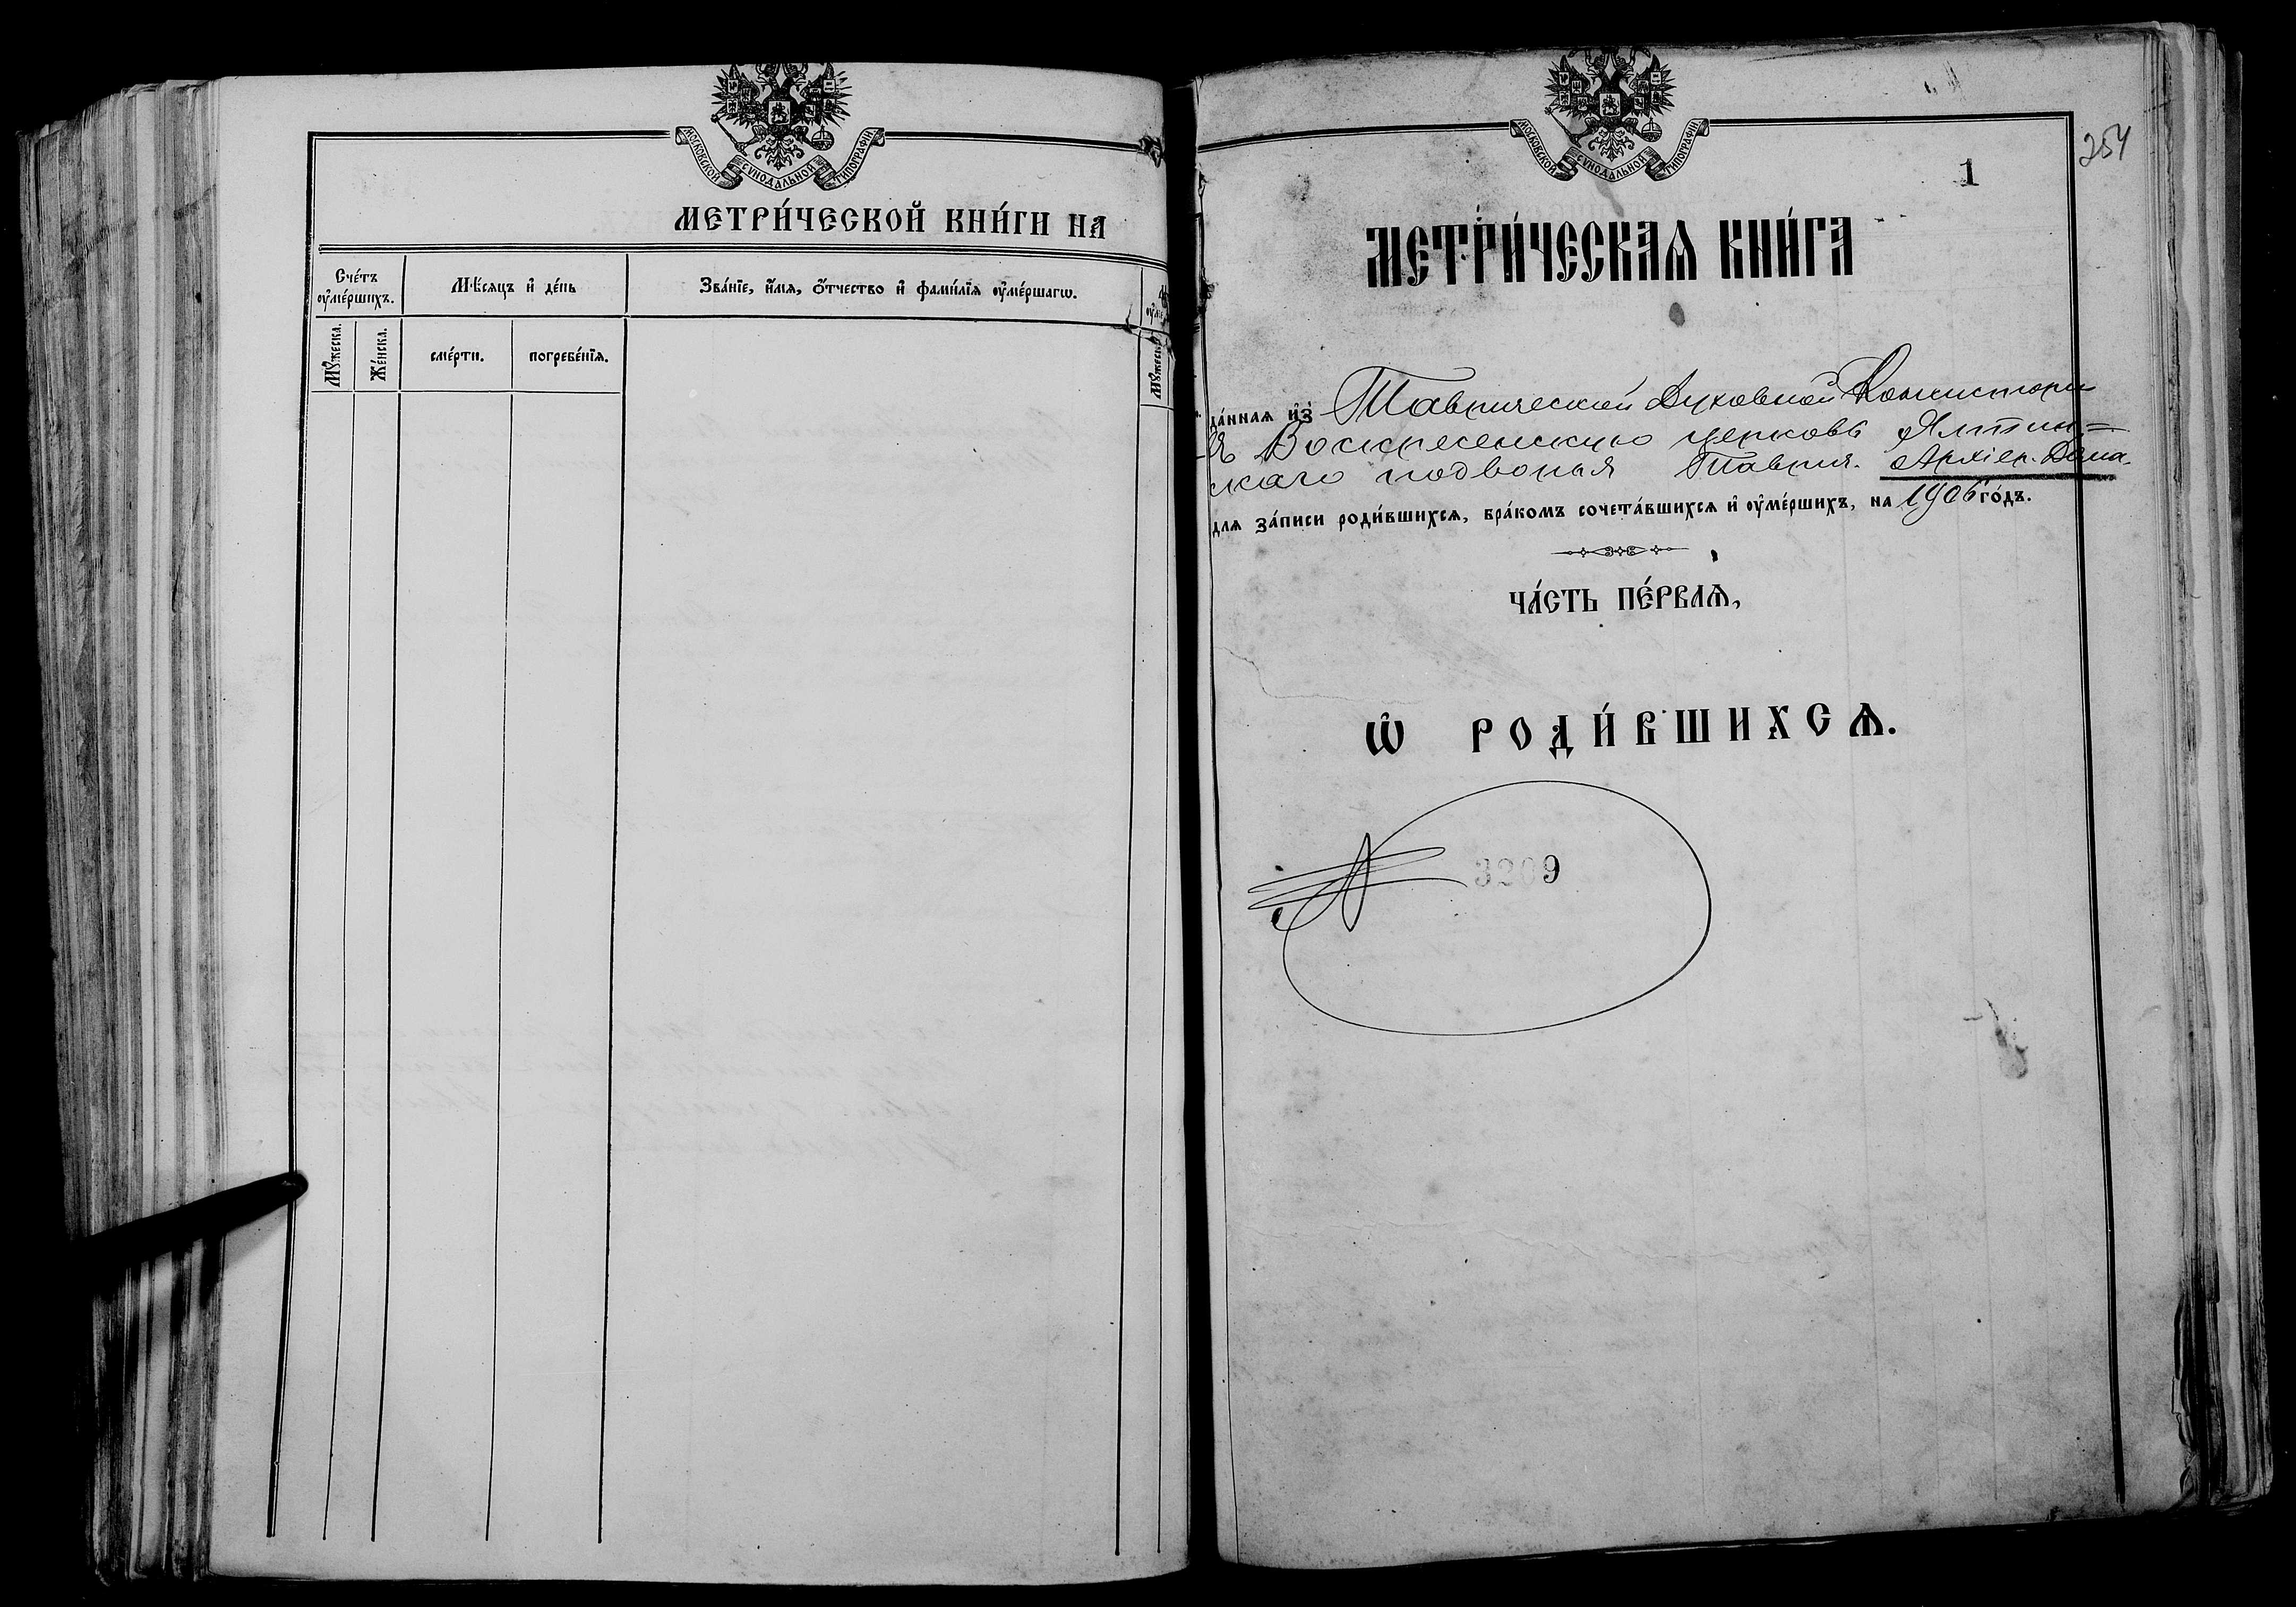 МОСКОВСКОЙ СѴНОДАЛЬНОЙ ТИПОГРАФІИ
МЕТРИ́ЧЕСКОЙ КНИ́ГИ НА
Сче́тъ ᲂу҆ме́ршихъ.
Мѣ́сяцъ и҆ де́нь
Зва́нїе, и҆́мѧ, ѻ҆́тчество и҆ фами́лїѧ ᲂу҆ме́ршагѡ.
Мꙋ́жеска.
Же́нска.
сме́рти.
погребе́нїѧ.
Мꙋ́жеска
МОСКОВСКОЙ СѴНОДАЛЬНОЙ ТИПОГРАФІИ
254
1
МЕТРИ́ЧЕСКАѦ КНИ́ГА
да́ннаѧ и҆з̾ Таврической Духовной Консисторіи
въ Воскресенскую церковь Ялтин=
скаго подворья Таврич. Архіер. Дома.
для за́писи роди́вшихсѧ, бра́комъ сочета́вшихсѧ и҆ ᲂу҆ме́ршихъ, на 1906 го́дъ.
ЧА́СТЬ ПЕ́РВАѦ,
Ѡ҆ РОДИ́ВШИХСѦ.
3209